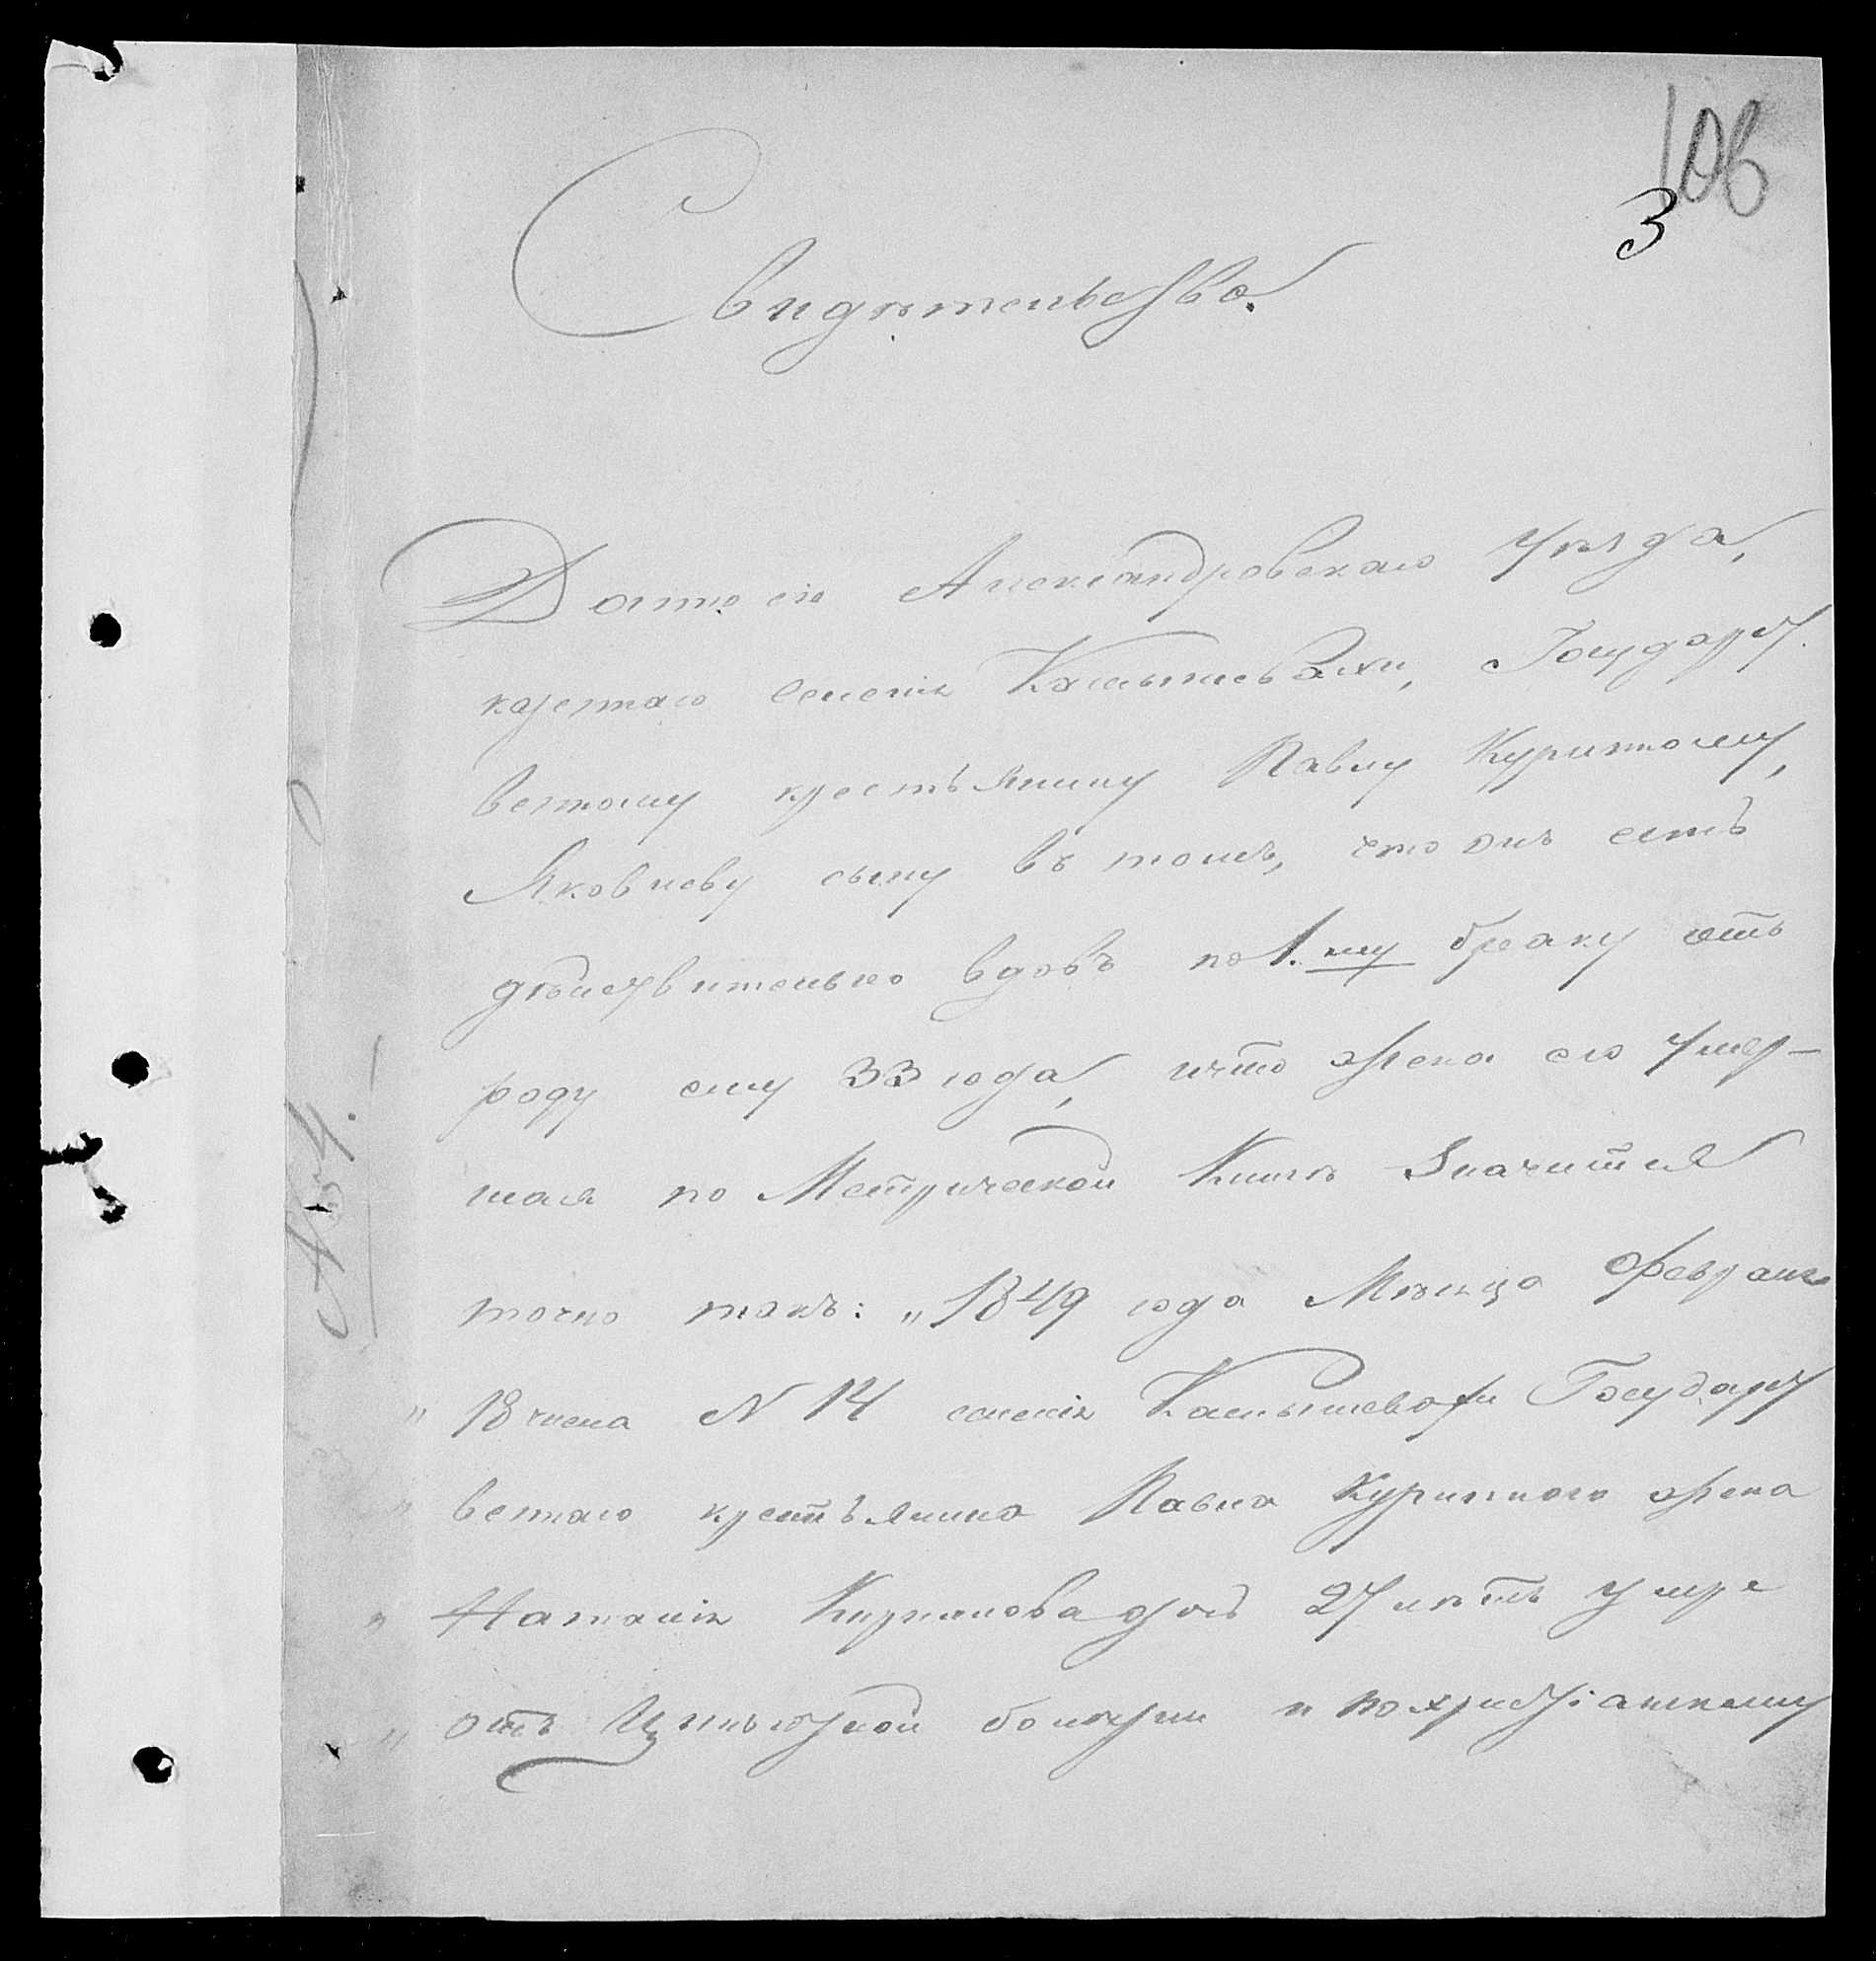 106
3
Свидѣтельство.
Дано сіе Александровскаго Уѣзда,
казеннаго селенія Камышевахи, Государст.
венному крестьянину Павлу Куринному,
Яковлеву сыну въ томъ, что онъ есть
дѣйствительно вдовъ по 1.му браку отъ
роду ему 33 года, что жена его умер-
шая по Метрической Книгѣ Значится
точно такъ: „1849 года Мѣсяца Февраля
„ 18 числа N 14 селенія Камышевахи Государст
„ веннаго крестьянина Павла Куринного жена
„ Наталія 27 лѣтъ умре
„ отъ болѣзни и похристіанскому
№ 34.